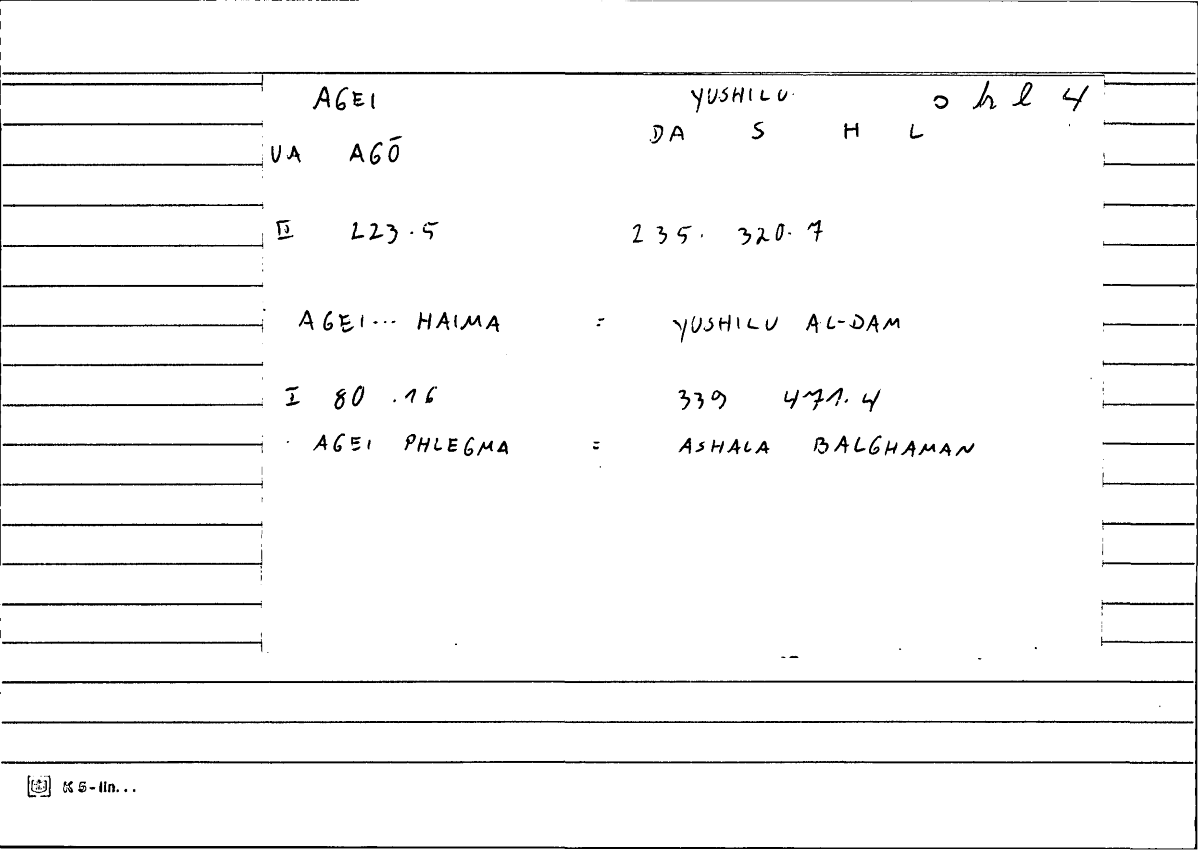 AGEI YUSHILU. o h l 4
DA S H L
UA AGŌ
II 223.5 235. 320.7
AGEI... HAIMA = YUSHILU AL-DAM
I 80 .16 339 471.4
AGEI PHLEGMA = ASHALA BALGHAMAN
K 5-lin...